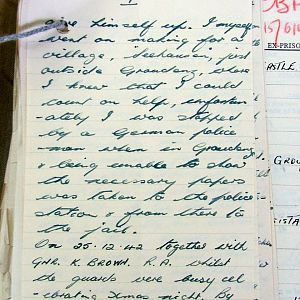 give himself up. I myself
went on making for a
village, just
outside Graudenz, where
I knew that I could
count on help, unfortun
-ately I was stopped
by a German police
-man when in Graudenz
& being unable to show
the necessary papers
was taken to the police
station & from there to
the jail.
On 25.12.42 together with
GNR. K. BROWN. R.A. whilst
the guards were busy cel
-ebrating Xmas night. By
EX-PRISON